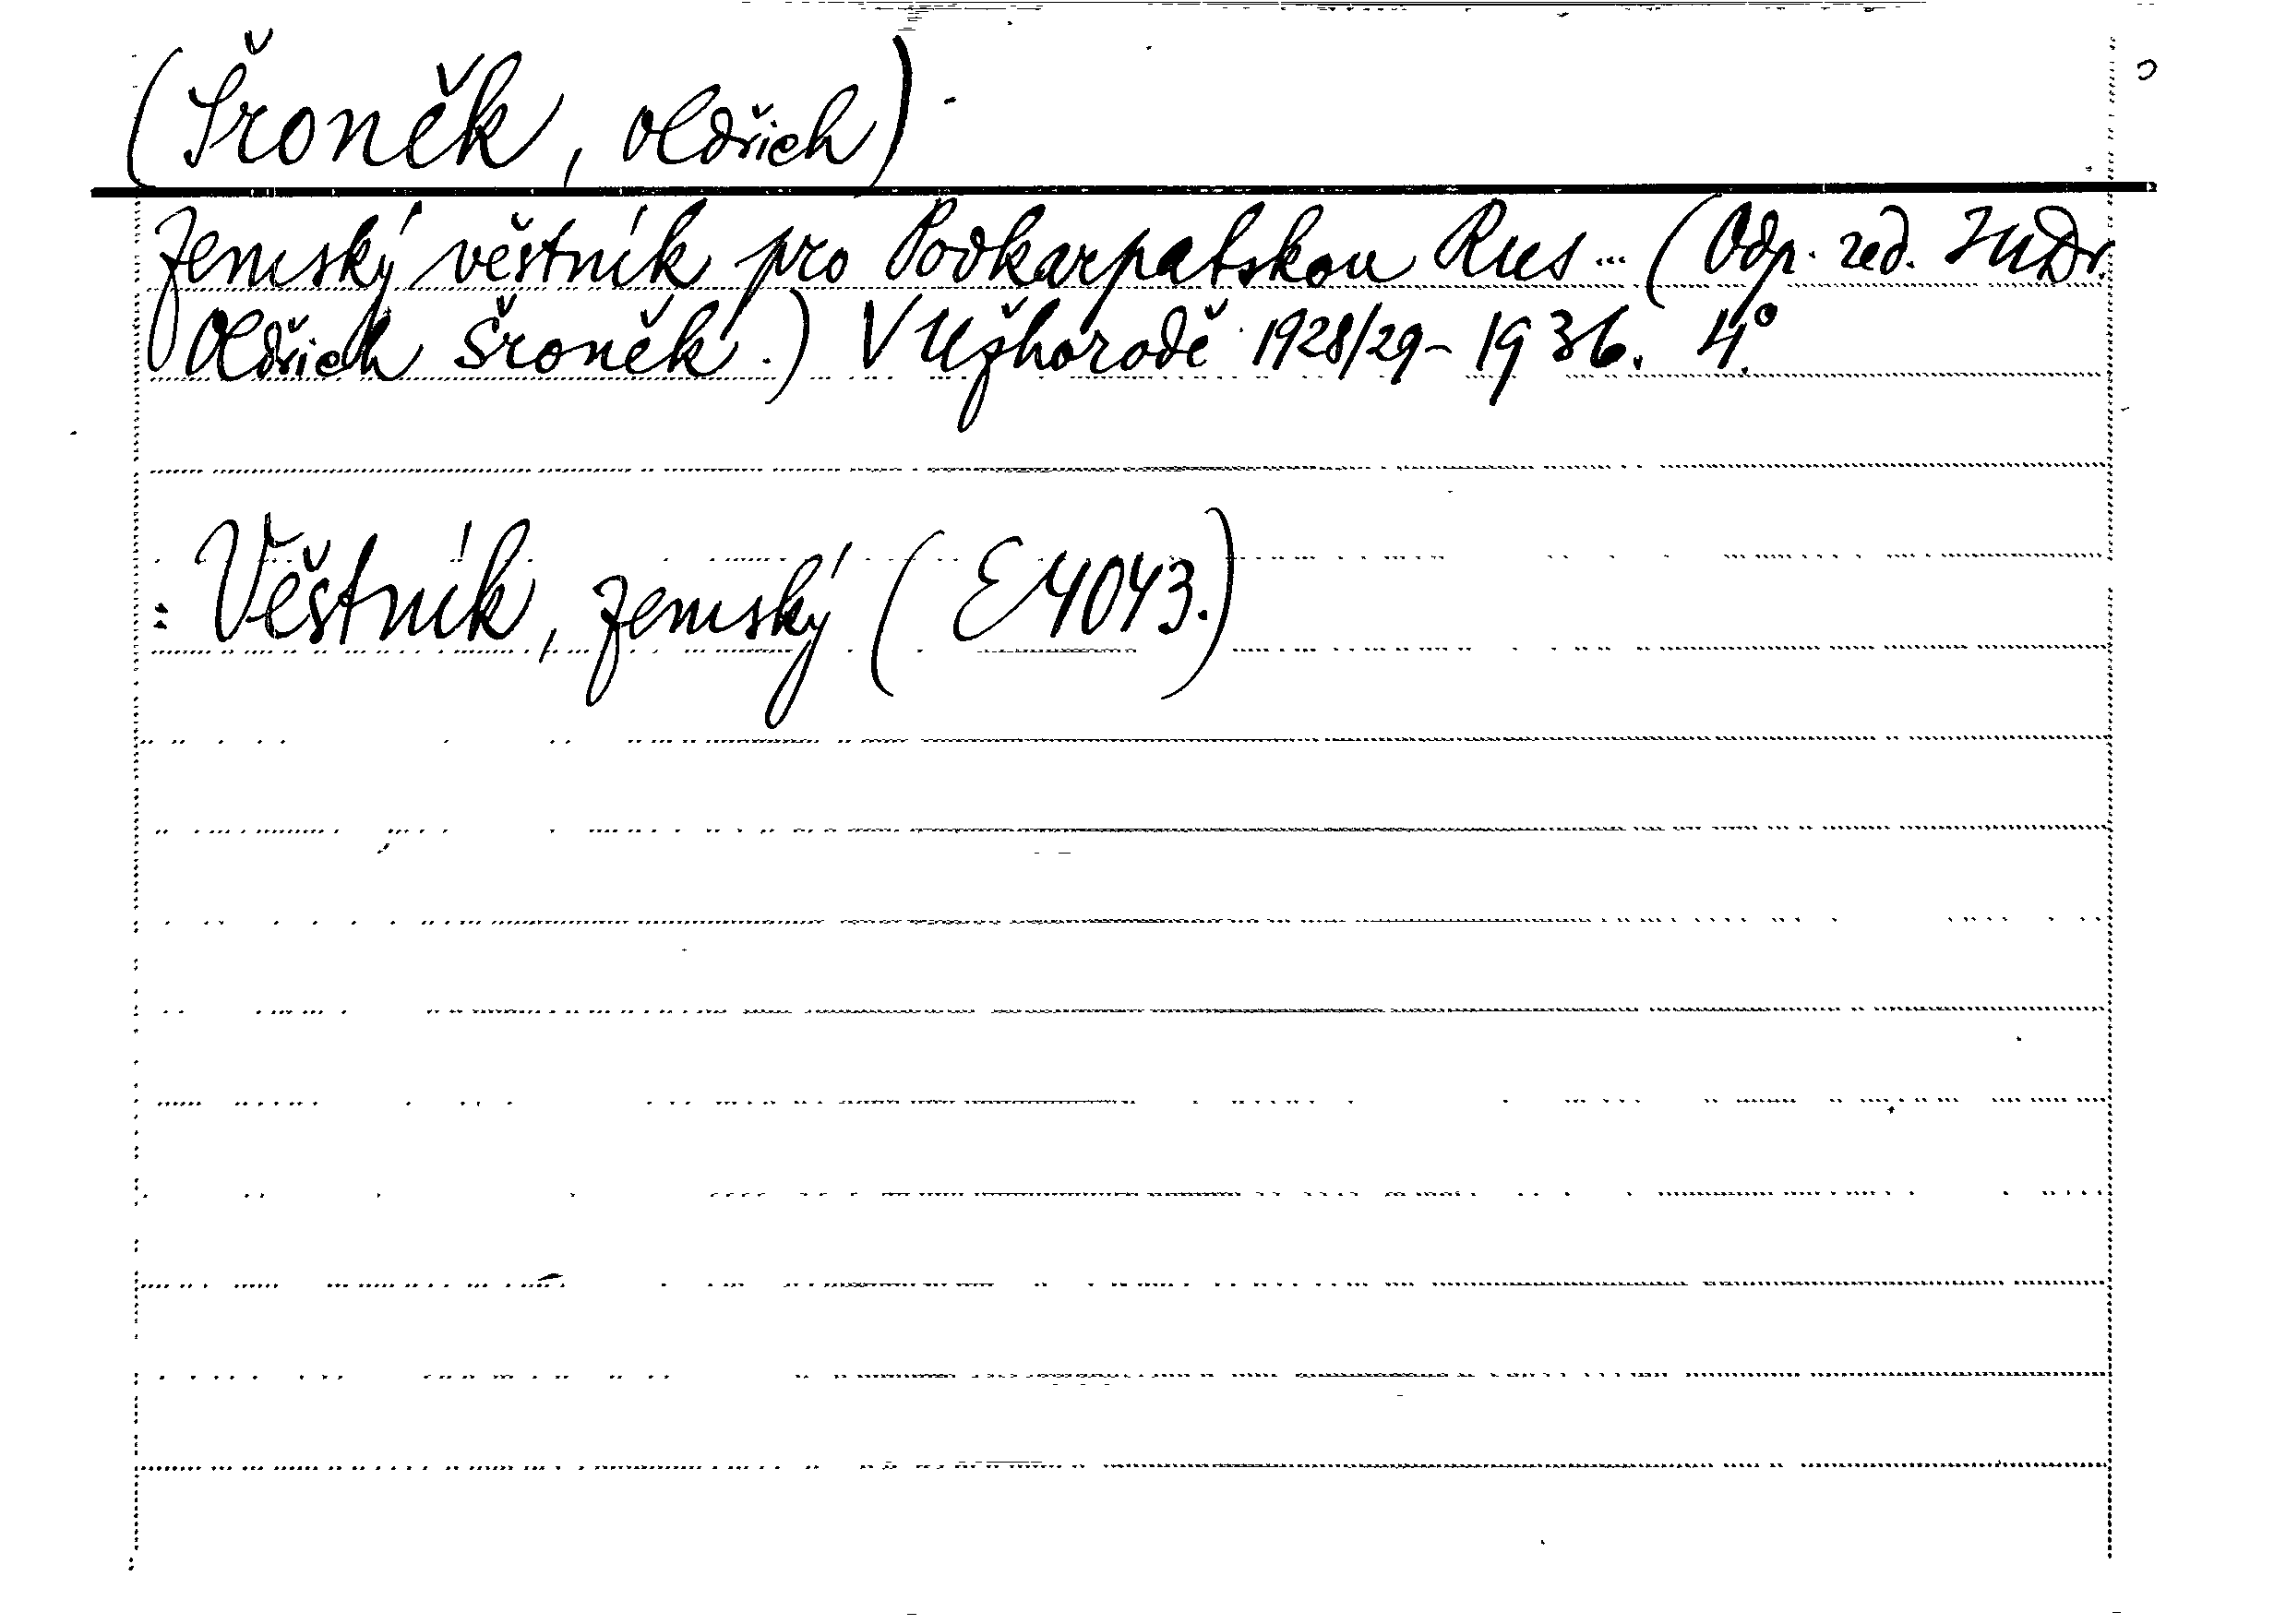 (Šroněk, Oldřich)
Zemský věstník pro Podkarpatskou Rus... (Odp. red. JUDr.
Oldřich Šroněk.) V Užhorodě 1928/29-1936. 4°.
: Věstník, zemský (E4043.)